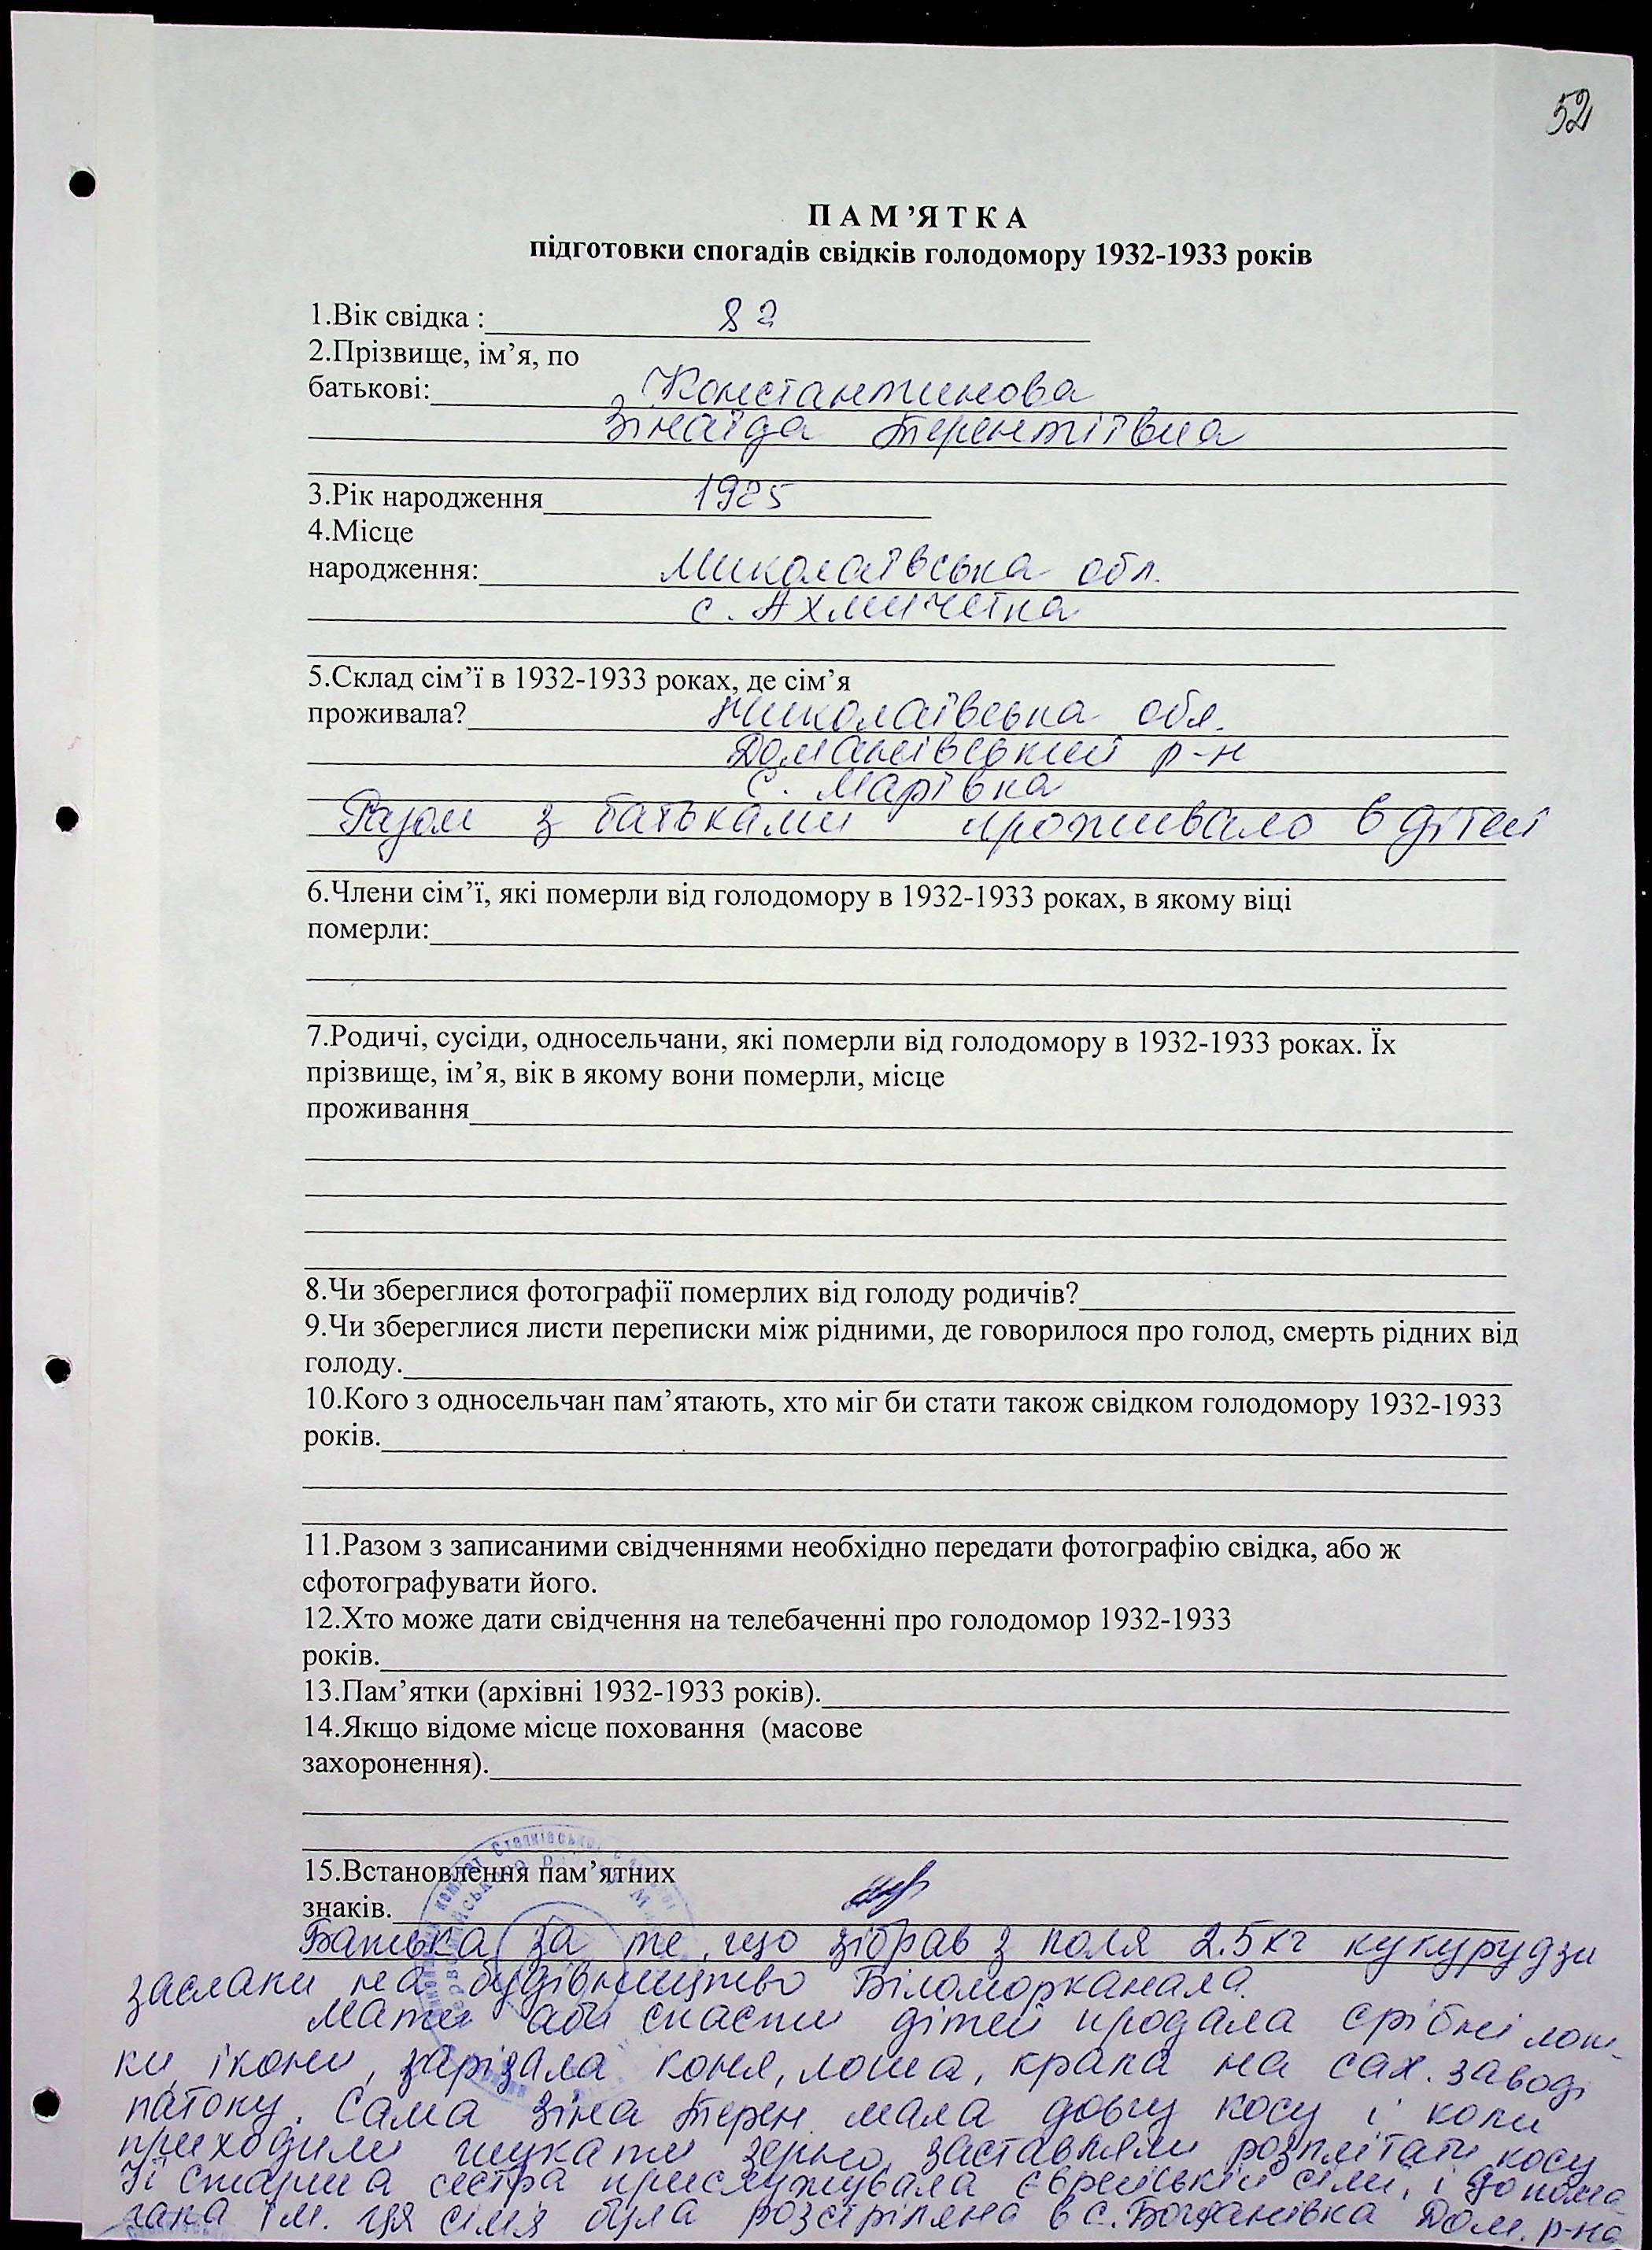 52
ПАМ’ЯТКА
підготовки спогадів свідків голодомору 1932-1933 років
1.Вік свідка : 82
2.Прізвище, ім’я, по
батькові: Константинова
Зінаїда Терентіївна
3.Рік народження 1925
4.Місце
народження: Миколаївська обл.
с. Ахмичетка
5.Склад сім’ї в 1932-1933 роках, де сім’я
проживала? Миколаївська обл.
Доманівський р-н
с. Марївка
Разом з батьками проживало 6 дітей
6.Члени сім’ї, які померли від голодомору в 1932-1933 роках, в якому віці
померли:
7.Родичі, сусіди, односельчани, які померли від голодомору в 1932-1933 роках. Їх
прізвище, ім’я, вік в якому вони померли, місце
проживання
8.Чи збереглися фотографії померлих від голоду родичів?
9.Чи збереглися листи переписки між рідними, де говорилося про голод, смерть рідних від
голоду.
10.Кого з односельчан пам’ятають, хто міг би стати також свідком голодомору 1932-1933
років.
11.Разом з записаними свідченнями необхідно передати фотографію свідка, або ж
сфотографувати його.
12.Хто може дати свідчення на телебаченні про голодомор 1932-1933
років.
13.Пам’ятки (архівні 1932-1933 років).
14.Якщо відоме місце поховання (масове
захоронення).
15.Встановлення пам’ятних
знаків.
Батька за те, що зібрав з поля 2.5 кг кукурудзи
заслали на будівництво Біломорканала.
Мати аби спасти дітей продала срібні лож-
ки, ікони, зарізала коня, лоша, крала на сах. заводі
патоку. Сама Зіна Терен. мала довгу косу і коли
приходили шукати зерно, заставляли розплітати косу
Її старша сестра прислужувала єврейській сімї, і допома
гала їм. Ця сімя була розстріляна в с. Богданівка Дом. р-на